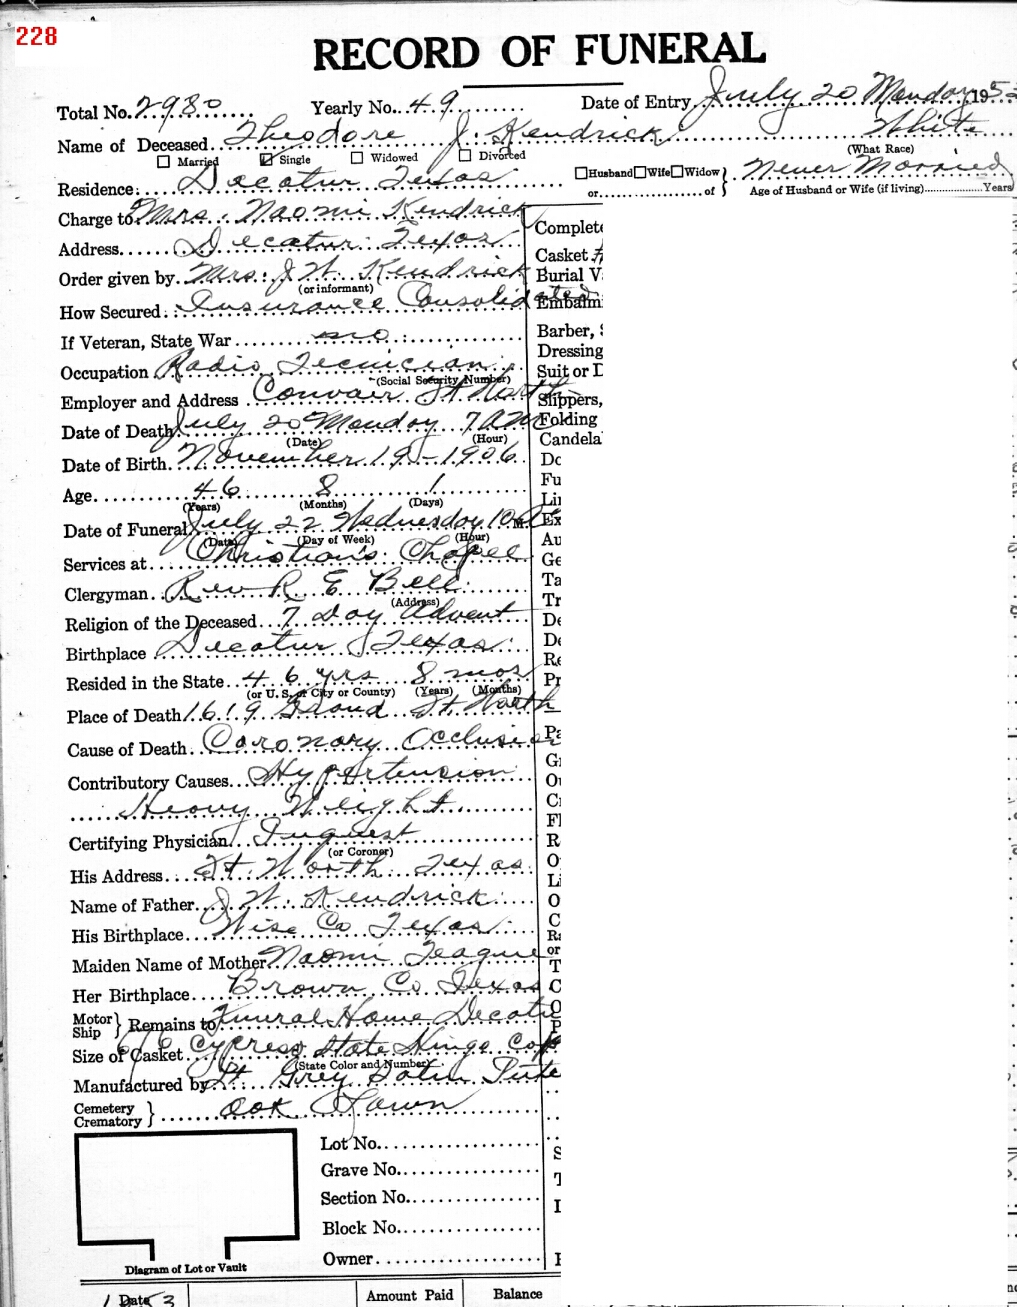 228
RECORD OF FUNERAL
Total No. 2980 Yearly No. 49 Date of Entry July 20 Monday 195
Name of Deceased Theodore J. Kendrick White
(What Race)
Married Single Widowed Divorced
Husband Wife Widow Never Married
or of
Residence Decatur Texas Age of Husband or Wife (if living) Years
Charge to Mrs. Naomi Kendrick
Complete
Address Decatur Texas
Casket
Order given by Mrs. J W. Kendrick Burial V
(or informant)
How Secured Insurance Consolidated Embalmi
If Veteran, State War no Barber, S
Dressing
Occupation Radio Tecnician Suit or D
(Social Security Number)
Employer and Address Convair Ft Worth Slippers,
Date of Death July 20 Monday 7 AM Folding
(Date) (Hour) Candela
Date of Birth November 19-1906 Do
Age 46 8 1 Fu
(Years) (Months) (Days) Li
Date of Funeral July 22 Wednesday 10 Ex
(Date) (Day of Week) (Hour) Au
Services at Christian's Chapel Ge
Clergyman Rev R E Bell Ta
(Address) Tr
Religion of the Deceased 7 Day Advent De
Birthplace Decatur Texas De
Re
Resided in the State 46 yrs 8 mos Pr
(or U. S. or City or County) (Years) (Months)
Place of Death 1619 Grand Ft Worth
Cause of Death Coronary Occlusion Pa
Contributory Causes Hypertension
Heavy Weight
Certifying Physician Inquest
(or Coroner)
His Address Ft. Worth Texas
Name of Father J W. Kendrick
His Birthplace Wise Co Texas
Maiden Name of Mother Naomi Teague
Her Birthplace Brown Co Texas
Motor Ship Remains to Funeral Home Decatu
Size of Casket 6/6 Cypress State Hinge Cop
(State Color and Number)
Manufactured by Lt. Grey Satin
Cemetery
Crematory Oak Lawn
Lot No.
Grave No.
Section No.
Block No.
Owner
Diagram of Lot or Vault
Date Amount Paid Balance